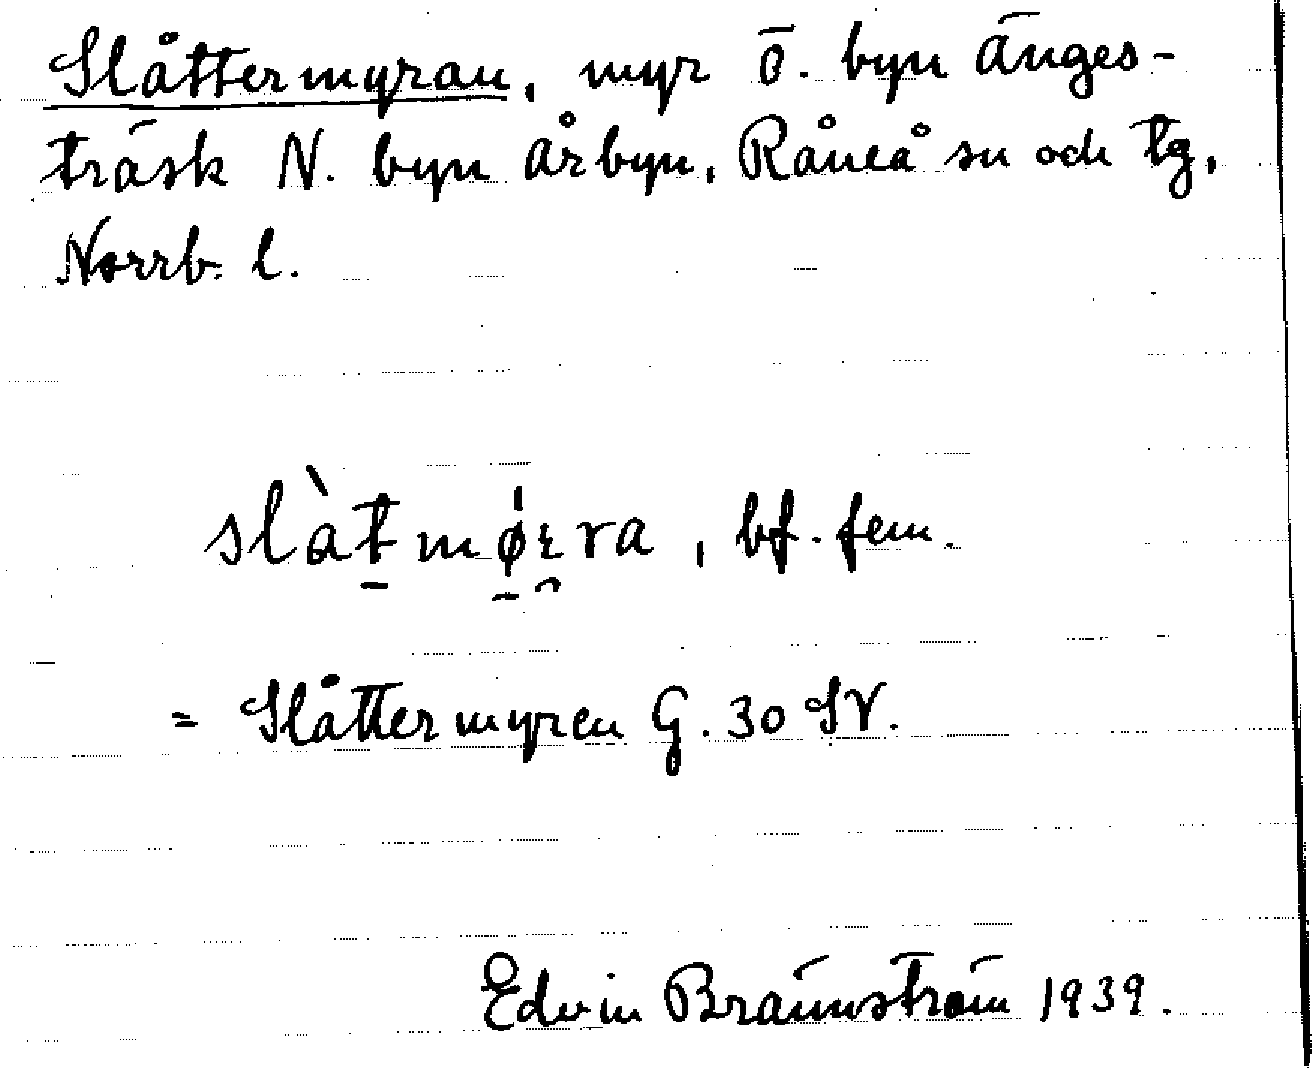 Slåttermyran, myr ö. byn Änges-
träsk N. byn Årbyn, Råneå sn och tg,
Norrb. l.
slàt̠mø̠ɪ̯ra, bf. fem.
= Slåttermyren G. 30 SV.
Edvin Brännström 1939.